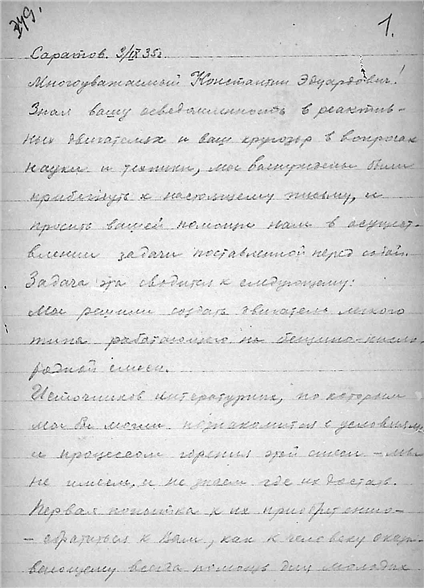 349.
1.
Саратов. 3/IX 35 г.
Многоуважаемый Константин Эдуардович!
Зная вашу осведомленность в реактив-
ных двигателях и ваш кругозор в вопросах
науки и техники, мы вынуждены были
прибегнуть к настоящему письму, и
просить вашей помощи нам в осущест-
влении задачи поставленной перед собой.
Задача эта сводится к следующему:
Мы решили создать двигатель легкого
типа работающего на бензино-кисло-
родной смеси.
Источников литературных, по которым
мы бы могли познакомится с условиями
и процессом горения этой смеси - мы
не имеем, и не знаем где их достать.
Первая попытка к их приобретению
- обратиться к Вам, как к человеку оказы-
вающему всегда помощь для молодых